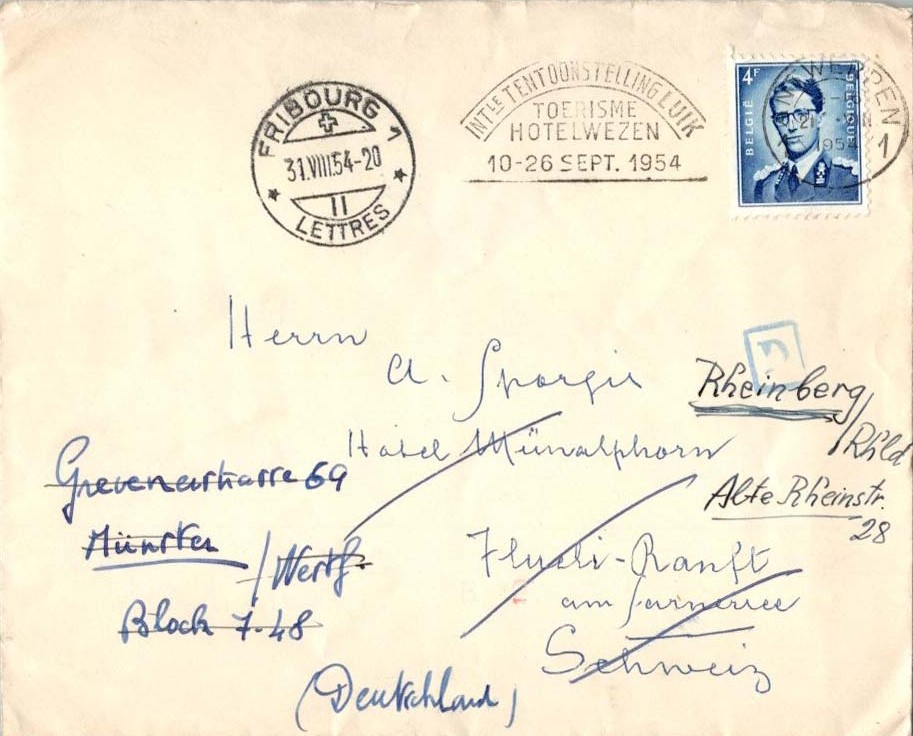 FRIBOURG 1
31.VIII.54-20
II
LETTRES
INTLE TENTOONSTELLING LUIK
TOERISME
HOTELWEZEN
10-26 SEPT. 1954
4F
BELGIË
BELGIQUE
ANTWERPEN
1954
1
Herrn
A.
Rheinberg
/Rhld
Hotel
Alte Rheinstr.
28
Grevenerstrasse 69
Münster
/Westf.
Block 7-48
Flueli-Ranft
am Sarnersee
Schweiz
(Deutschland)